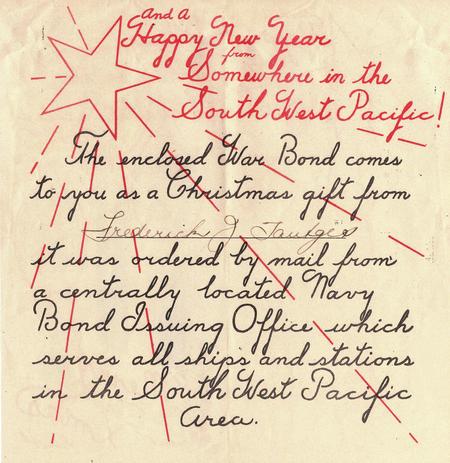 And A
Happy New Year
from
Somewhere in the
South West Pacific!
The enclosed War Bond comes
to you as a Christmas gift from
Frederick J. Tautges
it was ordered by mail from
a centrally located Navy
Bond Issuing Office which
serves all ships and stations
in the South West Pacific
Area.